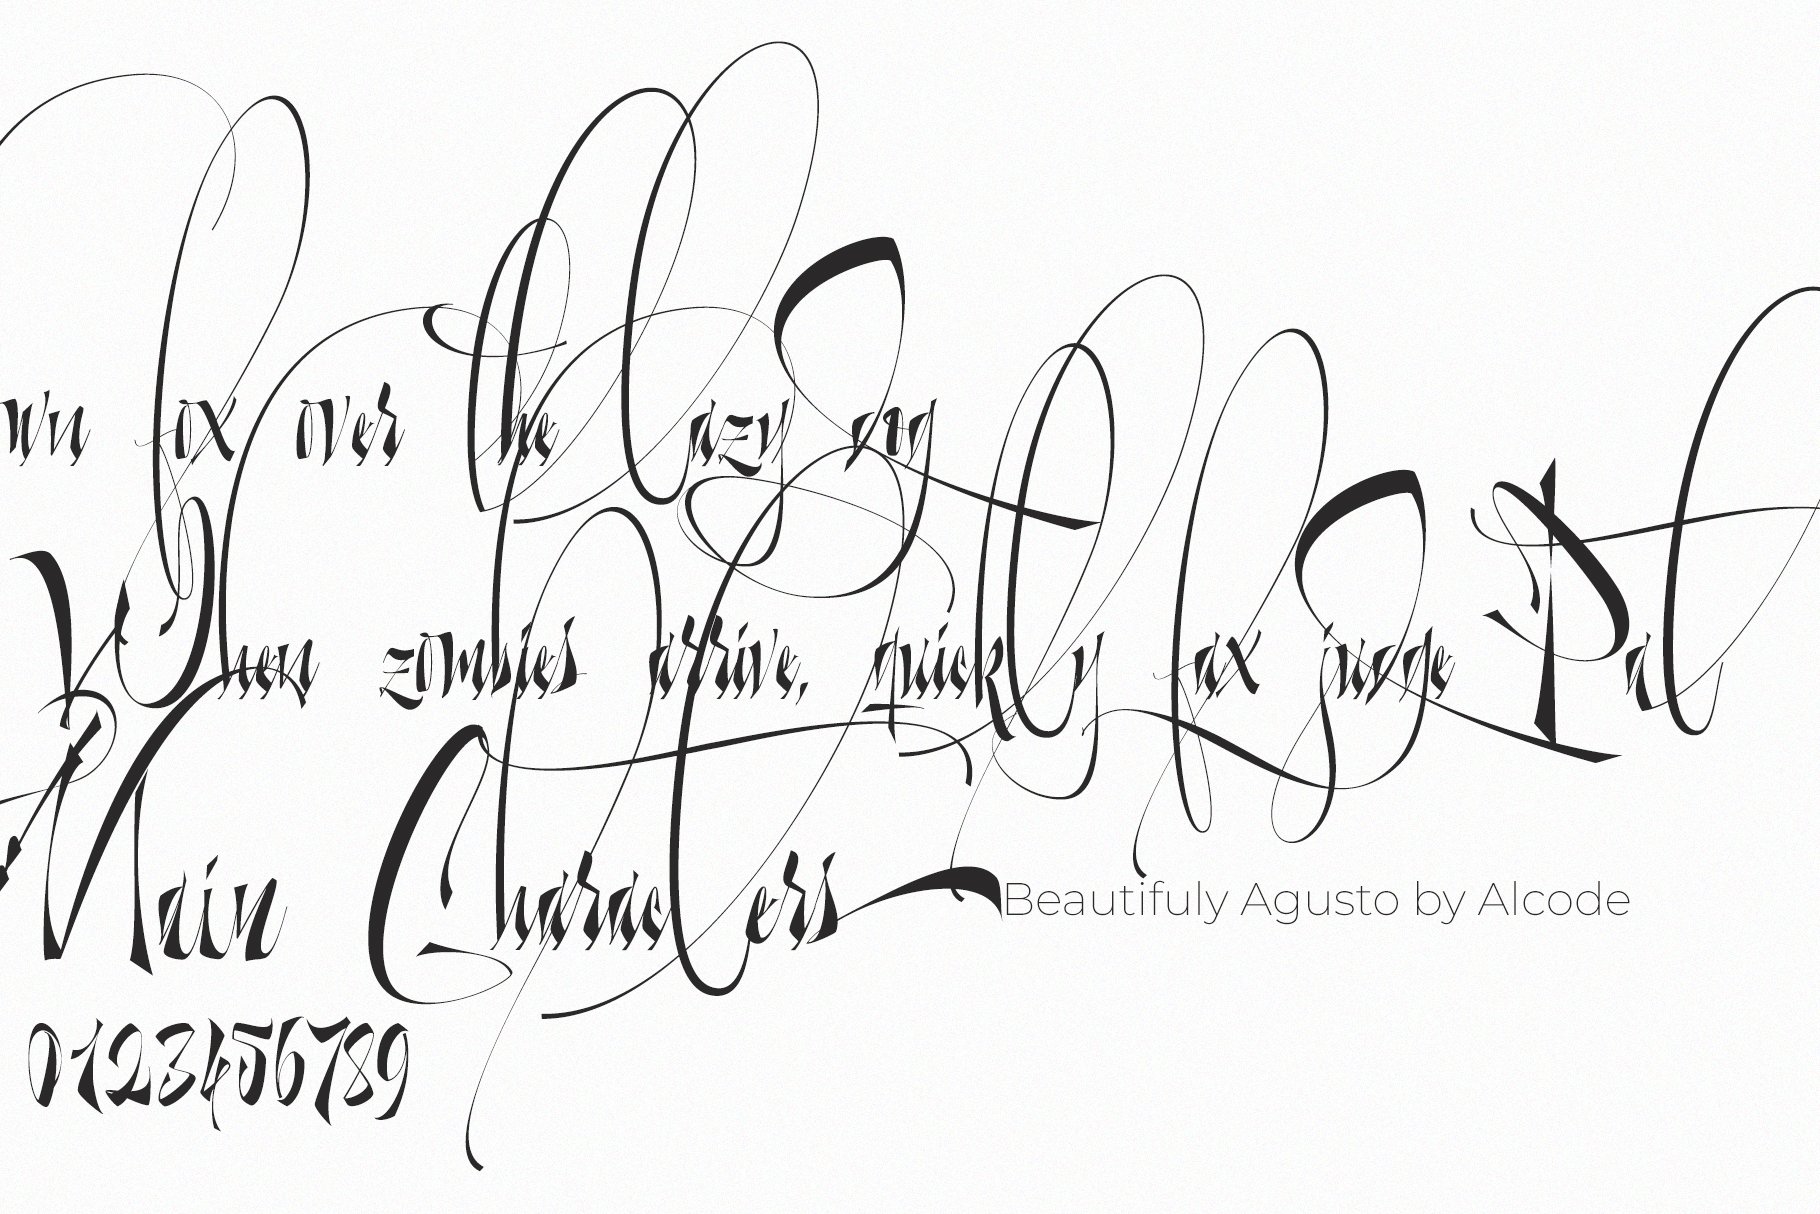 wn fox over the lazy dog
When zombies arrive, quickly fax judge Pat
Main Characters
Beautifuly Agusto by Alcode
0123456789